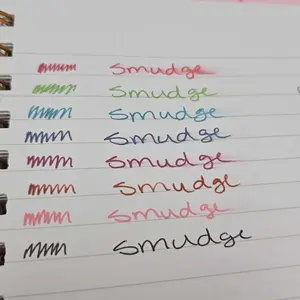 Smudge
Smudge
Smudge
Smudge
Smudge
Smudge
Smudge
Smudge